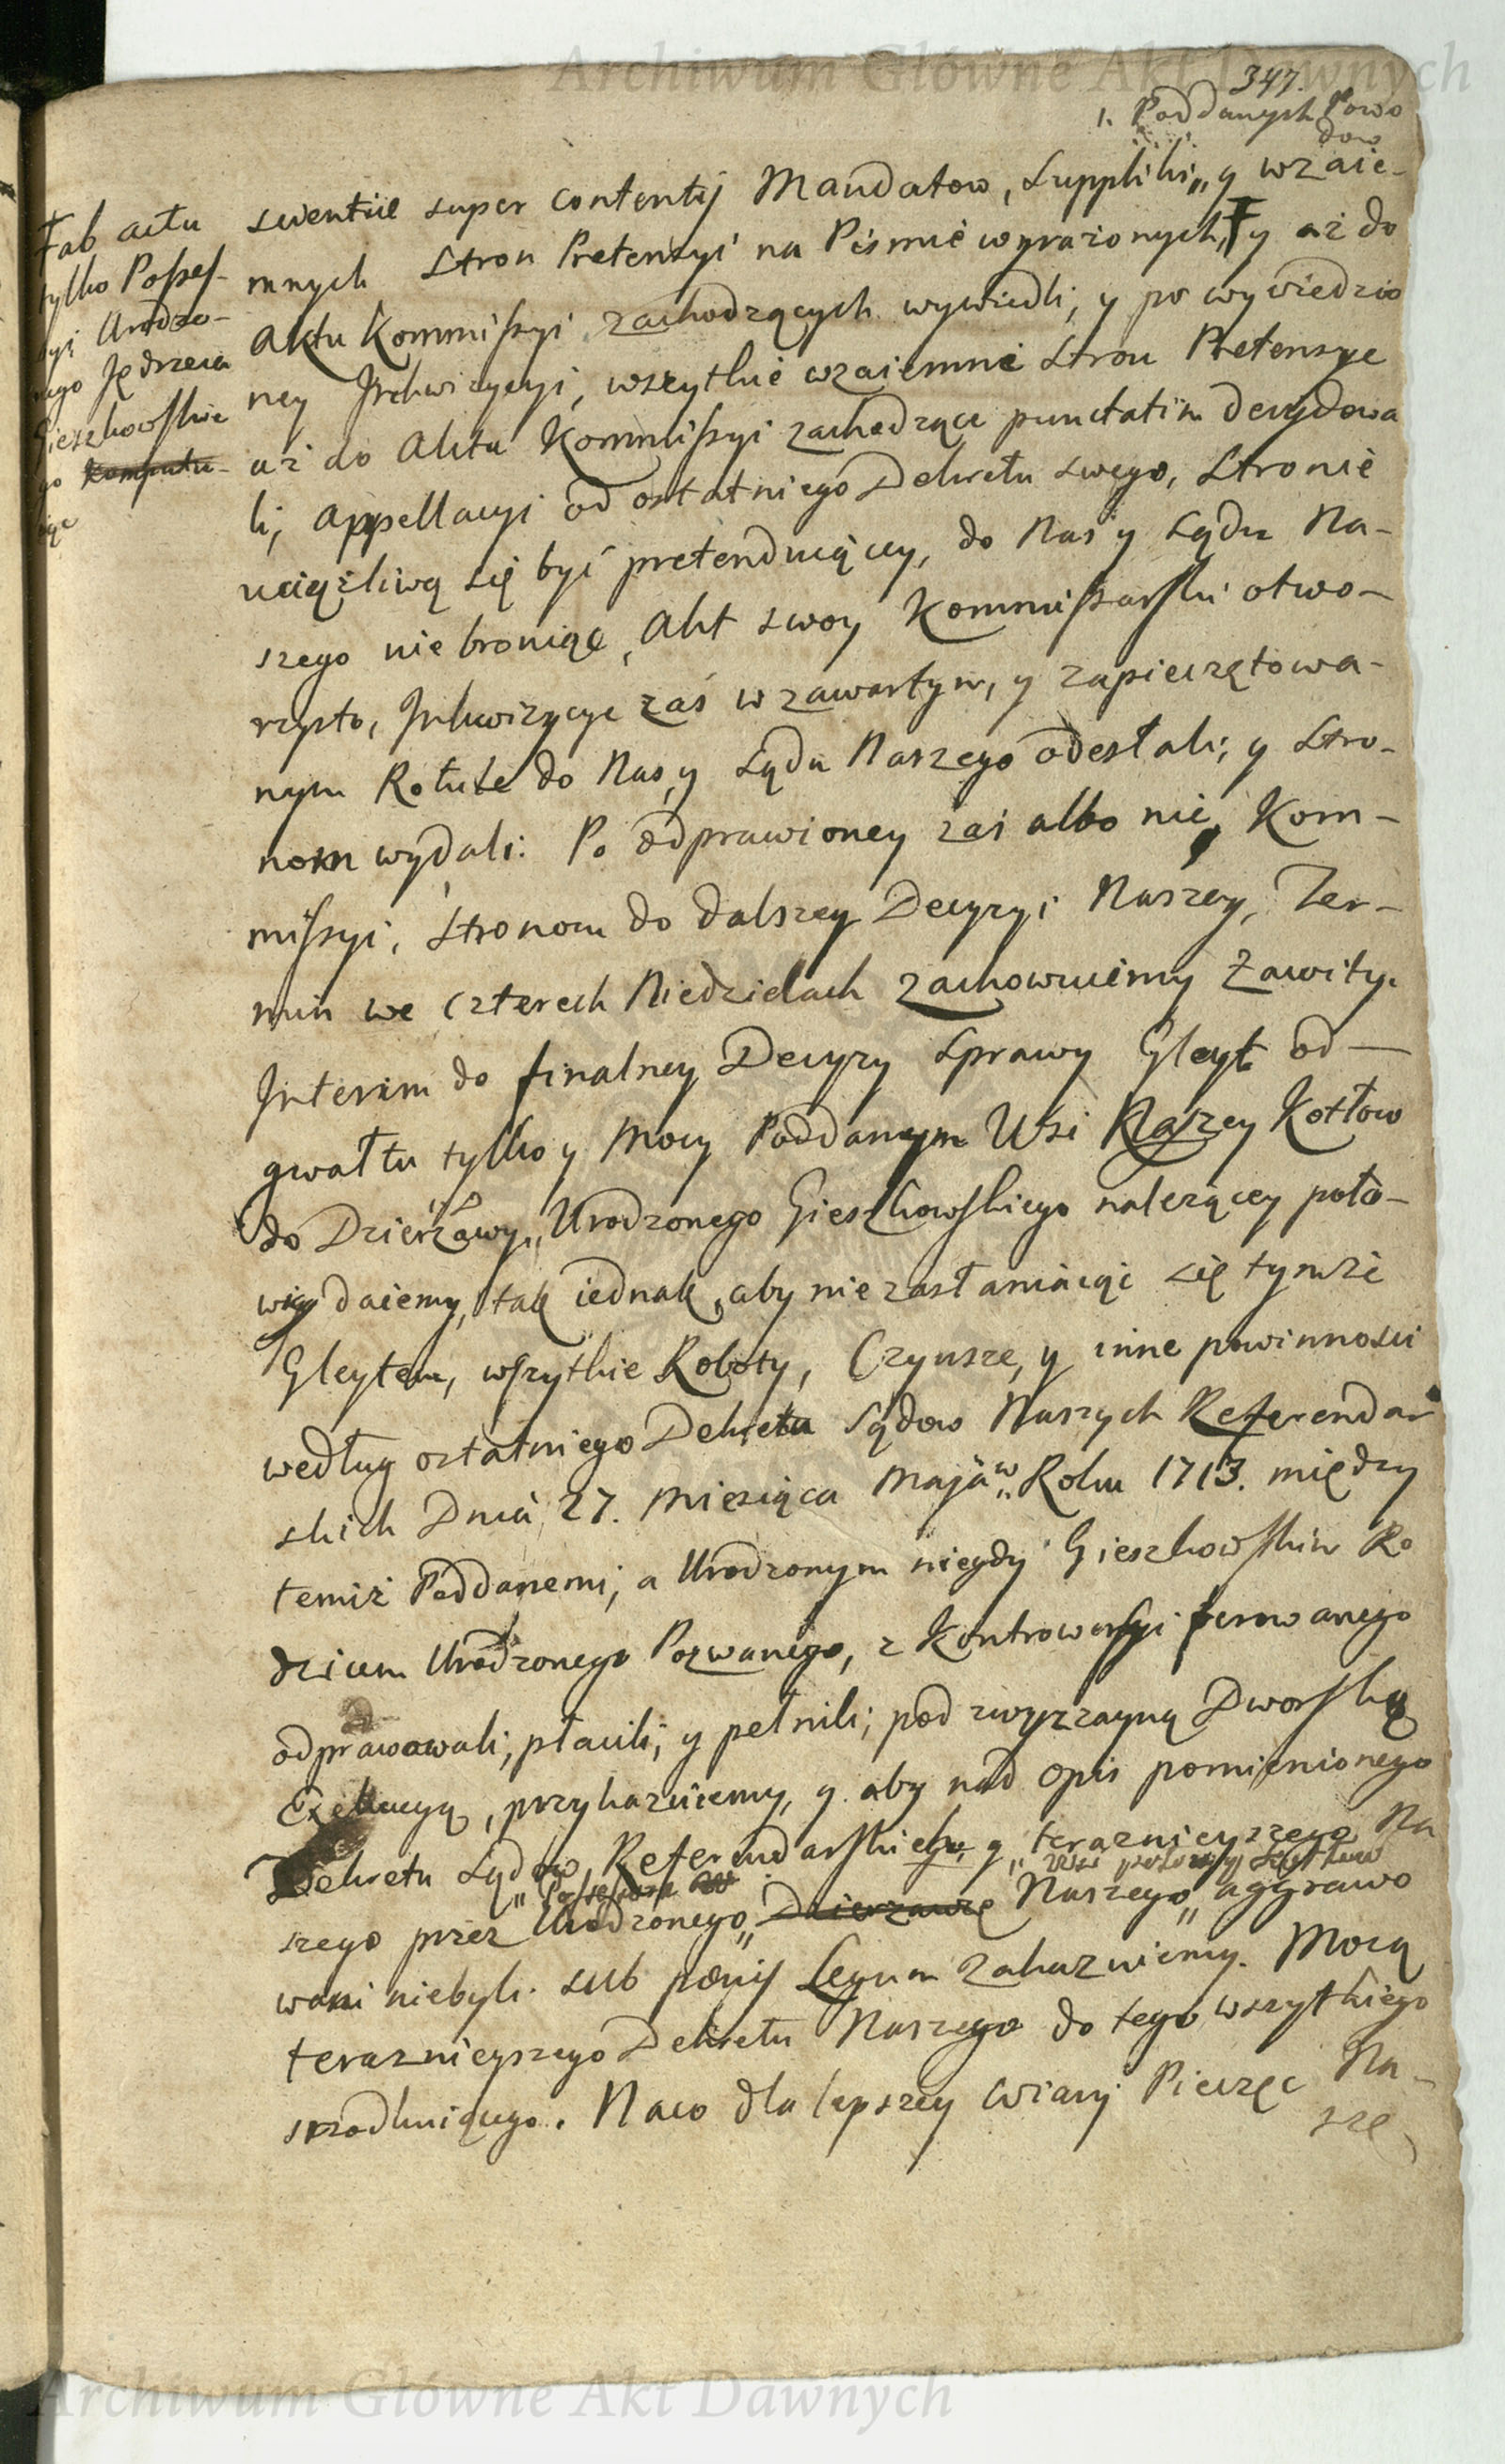 Archiwum Główne Akt Dawnych
347.
1. Poddanych Powo
dow
scientiæ super contentis Mandatow, Suppliki,, y wzaie-
mnych Stron Pretensyi na Pismie wyrażonych, Ŧ y aż do
Aktu Kommissyi zachodzących wywiedli, y po wywiedzio
ney Inkwizycyi, wszytkie wzaiemne Stron Pretensye
aż do Aktu Kommissyi zachodzące punctatim decydowa
li, Appellacyi od ostatniego Dekretu swego, Stronie
uciążliwą się być pretenduiącey, do Nas y Sądu Na-
szego niebroniąc, Akt swoy Kommissarski otwo-
rzysto, Inkwizycye zaś w zawartym, y zapieczętowa-
nym Rotule do Nas, y Sądu Naszego odesłali, y Stro-
nom wydali: Po odprawioney zaś albo nie, Kom-
missyi, Stronom do dalszey Decyzyi Naszey, Ter-
min we Czterech Niedzielach zachowuiemy Zawity.
Interim do finalney Decyzyi Sprawy Gleyt od
gwałtu tylko y Mocy Poddanym Wsi Naszey Kotłow
do Dzierżawy,, Urodzonego Gieszkowskiego należącey poło-
wicy daiemy, tak iednak, aby nie zasłaniaiąc się tymże
Gleytem, wszytkie Roboty, Czynsze, y inne powinnosci
według ostatniego Dekretu Sądow Naszych Referendar
skich Dnia 27. Miesiąca Maja,, w Roku 1713. między
temiż Poddanemi, a Urodzonym niegdy Gieszkowskim Ro
dzicem Urodzonego Pozwanego, z Kontrowersyi ferowanego
odprawowali, płacili, y pełnili, pod zwyczayną Dworską
Exekucyą, przykazuiemy, y aby nad opis pomienionego
Dekretu Sądow Referendarskich, y,, teraznieyszego Na
,, Possessora Wsi połowicy Kotłow
szego przez Urodzonego,, Dzierzawcę Naszego,, aggrawo
wani niebyli. sub pœnis Legum zakazuiemy. Mocą
teraznieyszego Dekretu Naszego do tego wszytkiego
srzodkuiącego. Naco dla lepszey wiary Pieczęc Na-
szę
Ŧ ab actu
tylko Posses-
syi Urodzo-
nego Jędrzeia
Gieszkowskie
go komputu-
iąc
Archiwum Główne Akt Dawnych